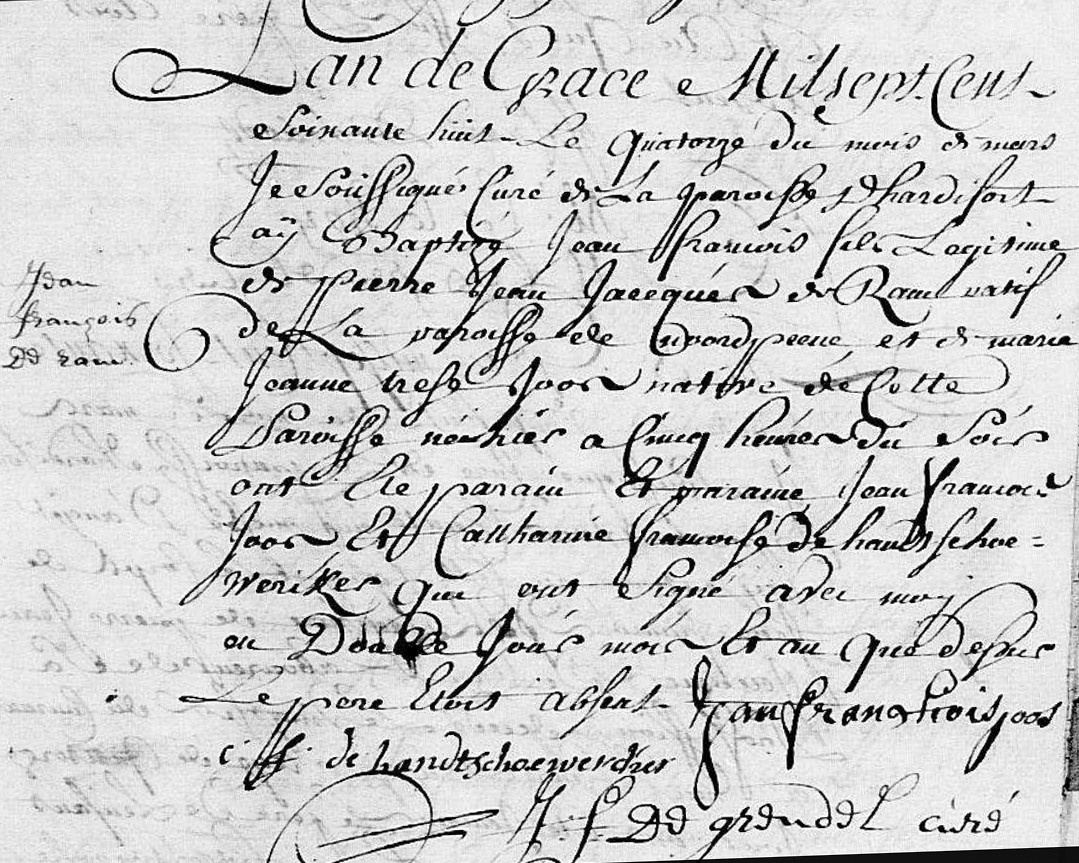 Lan de Grace Mil sept Cent
Soixante huit Le quatorze du mois de mars
Je Soussigné Curé de La paroisse Dhardifort
aÿ Baptizé Jean francois fils Legitime
de pierre Jean Jacques de Ram natif
Jean
françois
De ram
de La paroisse de noordpeene et de marie
Jeanne Joos native de Cette
Paroisse a Cincq heures du Soir
ont Ete parain Et maraine Jean francois
Joos Et Catharine francoise de handtschoe=
werker qui ont Signé avec moy
en Double Jour mois Et an que desus
Le pere Etoit absent Jan franchois joos
c ff de handtschoewercker
J f De grendel curé